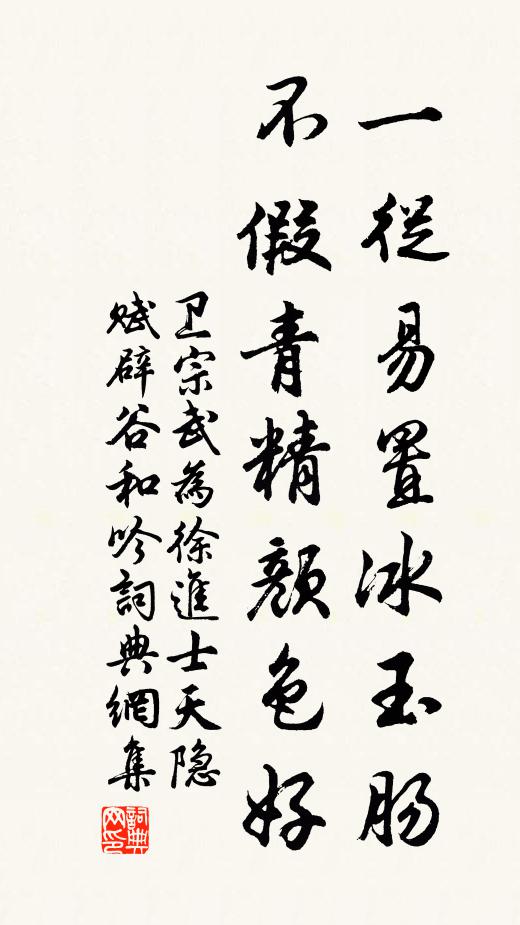 一從易置冰玉肠
不假青精顏色好
卫宗武為徐進士天隐
赋辟谷和吟詞典網集
詞典网印